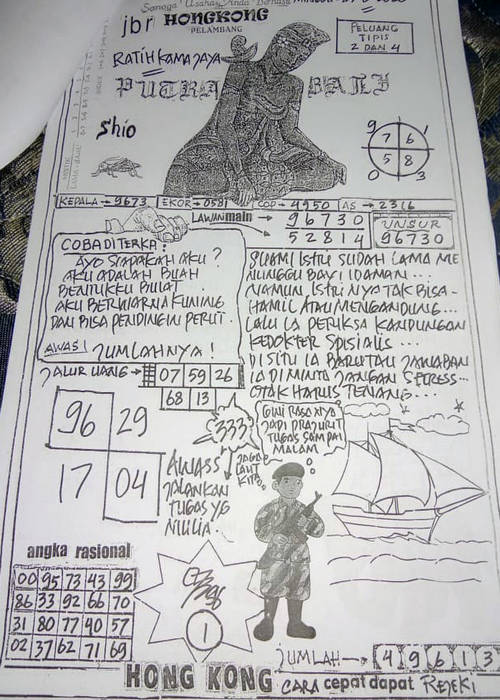 jbr HONGKONG
PELAMBANG
PELUANG
TIPIS
2 DAN 4
RATIH KAMAJAYA
PUTRA BALI
Shio
9 1
7 6
5 8
0 3
KEPALA → 9673 EKOR → 0581 COP → 4950 AS → 2316
LAWAN main → 96730
52814
UNSUR
96730
COBA DITERKA :
AYO SIAPAKAH AKU ?
AKU ADALAH BUAH
BENTUKKU BULAT
AKU BERWARNA KUNING
DAN BISA PENDINGIN PERUT.
AWAS! JUMLAHNYA !
SUAMI ISTRI SUDAH LAMA ME
NUNGGU BAYI IDAMAN...
NAMUN ISTRI NYA TAK BISA-
HAMIL ATAU MENGANDUNG...
LALU IA PERIKSA KANDUNGAN
KEDOKTER SPISIALIS ...
DISITU IA BARU TAU JAWABAN
IA DIMINTA JANGAN STRESS...
OTAK HARUS TENANG...
JALUR UANG → 07 59 26
68 13
96 29
17 04
333?
AWASS
JALANKAN
TUGAS YG
MULIA.
GINI RASANYA
JADI PRAJURIT
TUGAS SAMPAI
MALAM
JAGA
LAUT
KITA
angka rasional
00 95 73 43 99
86 33 92 66 70
31 80 77 40 57
02 37 62 71 69
1
JUMLAH → 4 9 6 1 3
HONG KONG CARA cepat dapat REJEKI